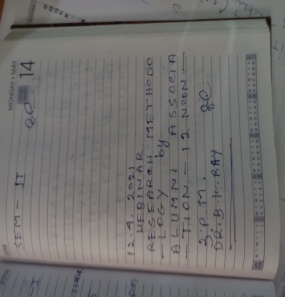 MONDAY • MAY
14
SEM - II
12.9.2021
WEBINAR
RESEARCH METHODO
- LOGY by
ALUMNI ASSOCIA
- TION - 12 NOON -
3. P.M.
DR. B. K. RAY